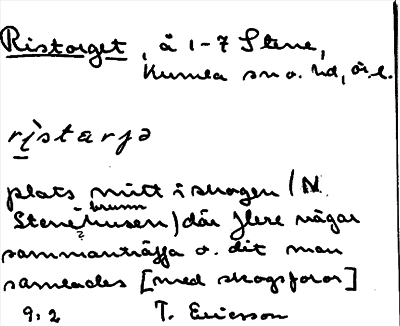 Ristorget, å 1-7 Stene,
Kumla sn o. hd, ör. l.
ristarjə
plats mitt i skogen (N.
brunn
Stenehusen) där flere vägar
?
sammanträffa o. dit man
samlades [med skogsforor]
9:2 T. Ericsson